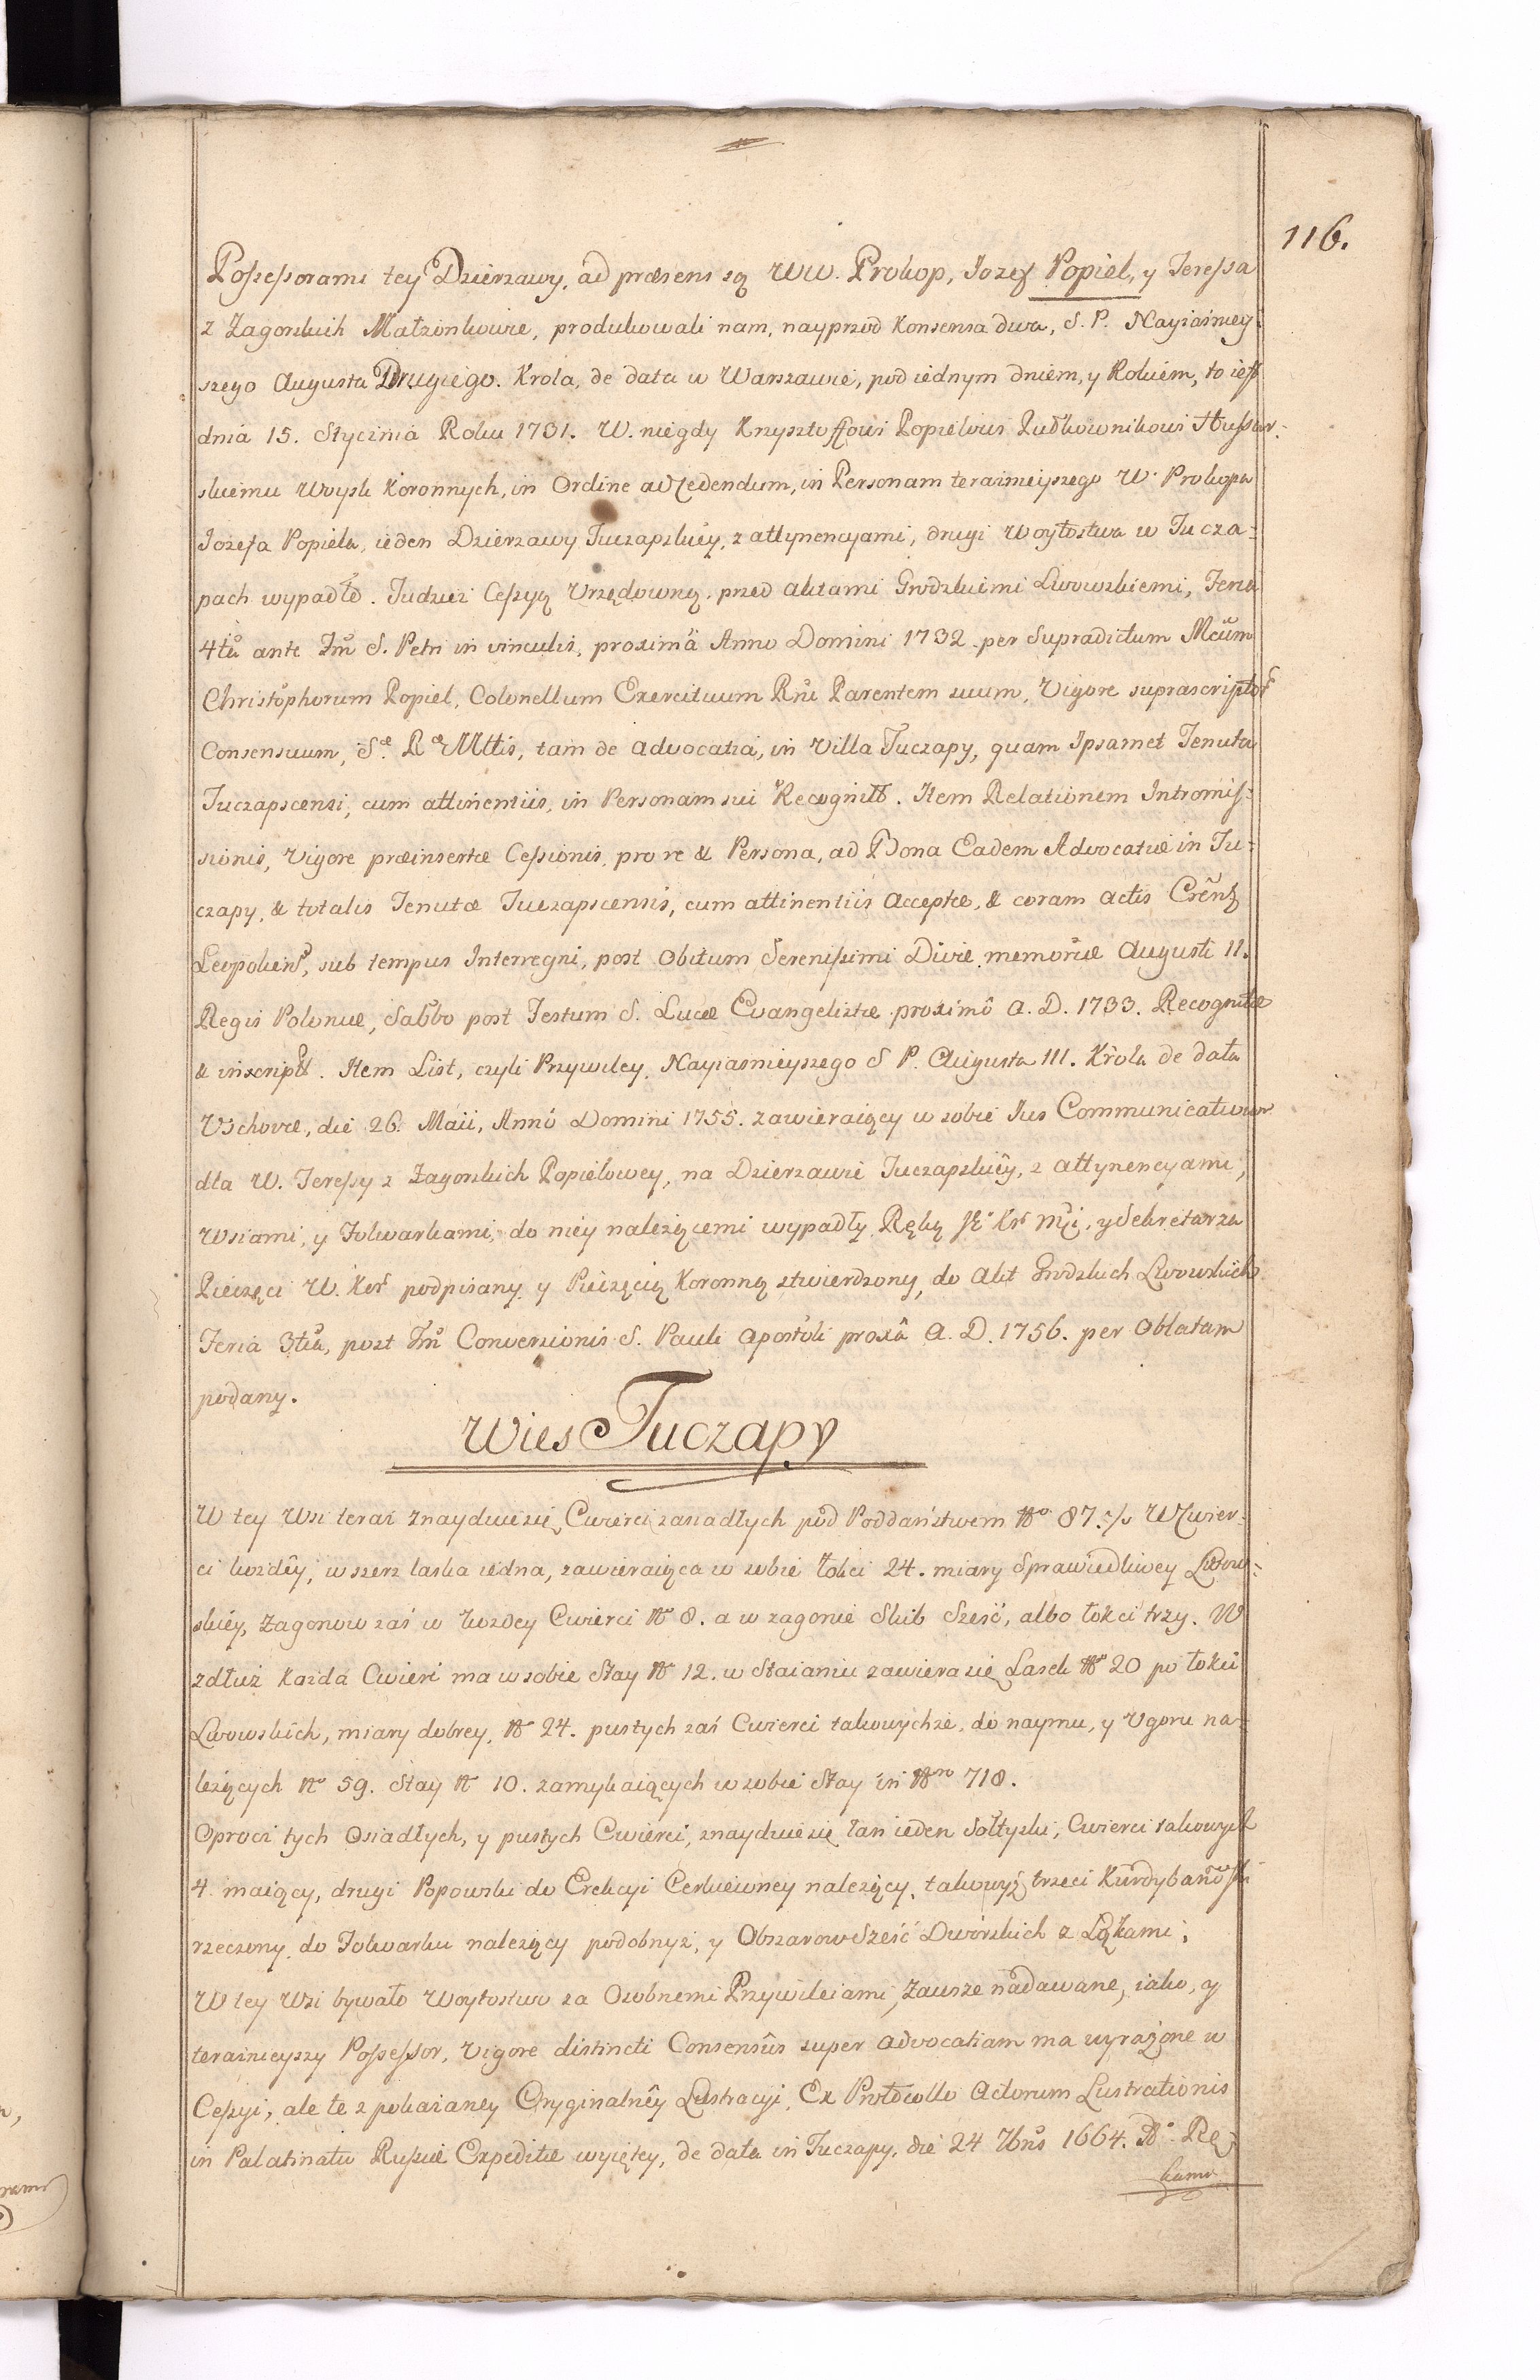 116.
Possessorami tey Dzierzawy, ad præsens są WW. Prokop, Jozef Popiel, y Teressa
z Zagorskich Małzonkowie, produkowali nam, nayprzod Konsensa dwa, S. P. Nayiasniey-
szego Augusta Drugiego. Krola, de data w Warszawie, pod iednym dniem, y Rokiem, to iest
dnia 15. Stycznia Roku 1731. W. niegdy Krzysztoffowi Popielowi Pułkownikowi Hussar-
skiemu Woysk Koronnych, in Ordine ad Cedendum, in Personam teraznieyszego W. Prokopa
Jozefa Popiela, ieden Dzierzawy Tuczapskiey, z attynencyami, drugi Woytostwa w Tucza-
pach wypadłe. Tudziez Cessyą Urzędowną, przed Aktami Grodzkiemi Lwowskiemi, Feria
4tâ ante Fm̃ S. Petri in vinculis, proximâ Anno Domini 1732. per Supradictum Mcum
Christophorum Popiel, Colonellum Exercituum Rñi Parentem suum, Vigore suprascriptor
Consensuum, Sæ RæMttis, tam de Advocatia, in Villa Tuczapy, quam Ipsamet Tenuta
Tuczapscensi, cum attinentiis, in Personam sui Recognit. Item Relationem Intromis-
sionis, Vigore præinsertæ Cessionis, pro re & Persona, ad Bona Eadem Advocatiæ in Tu-
czapy, & totalis Tenutæ Tuczapscensis, cum attinentiis Acceptæ, & coram Actis Crẽnz
Leopolien, sub tempus Interregni, post Obitum Serenissimi Divæ memoriæ Augusti II.
Regis Poloniæ, Sabbo post Festum S. Lucæ Evangelistæ proximô A. D. 1733. Recognitæ
& inscript. Item List, czyli Przywiley, Nayiasnieyszego S P. Augusta III. Krola de data
Vschovæ, die 26. Maii, Annô Domini 1755. zawieraiący w sobie Jus Communicativum
dla W. Teressy z Zagorskich Popielowey, na Dzierzawie Tuczapskiey, z attynencyami,
Wsiami, y Folwarkami, do niey nalezącemi wypadły, Ręką JK Kr Mci, y Sekretarza
Pieczęci W. Kor podpisany, y Pieczęcią Koronną stwierdzony, do Akt Grodzkich Lwowskich
Feria 3tiâ, post Fm̃ Conversionis S. Pauli Apostoli proxâ A. D. 1756. per Oblatam
podany.
Wies Tuczapy
W tey Wsi teraz znayduie się Cwierci zasiadłych pod Poddaństwem No 87. W Cwier-
ci kozdêy, w szerz laska iedna, zawieraiąca w sobie łokci 24. miary Sprawiedliwey Lwow-
skiey, Zagonow zaś w kozdey Cwierci No 8. a w zagonie Skib Szesć, albo łokci trzy. W
zdłuz Kazda Cwierć ma w sobie Stay No 12. w Staianiu zawiera się Lasek No 20 po łokci
Lwowskich, miary dobrey, No 24. pustych zaś Cwierci takowychze, do naymu, y Vgoru na-
lezących No 59. Stay No 10. zamykaiących w sobie Stay in Nro 718.
Oprocz tych Osiadłych, y pustych Cwierci, znayduie się łan ieden Sołtyski, Cwierci takowych
4. maiący, drugi Popowski do Erekcyi Cerkiewney nalezący, takowyz trzeci Kurdybanowski
rzeczony, do Folwarku nalezący podobnyz, y Obszarow Szesć Dworskich z Łąkami;
W tey Wsi bywało Woytostwo za Osobnemi Przywileiami, Zawsze nadawane, iako, y
teraznieyszy Possessor, Vigore distincti Consensûs super Advocatiam ma wyrażone w
Cessyi, ale te z pokazaney Oryginalnêy Lustracyi, Ex Protocollo Actorum Lustrationis
in Palatinatu Russiæ Expeditæ wyiętey, de data in Tuczapy, die 24 7bris 1664. Ao Rę-
kami